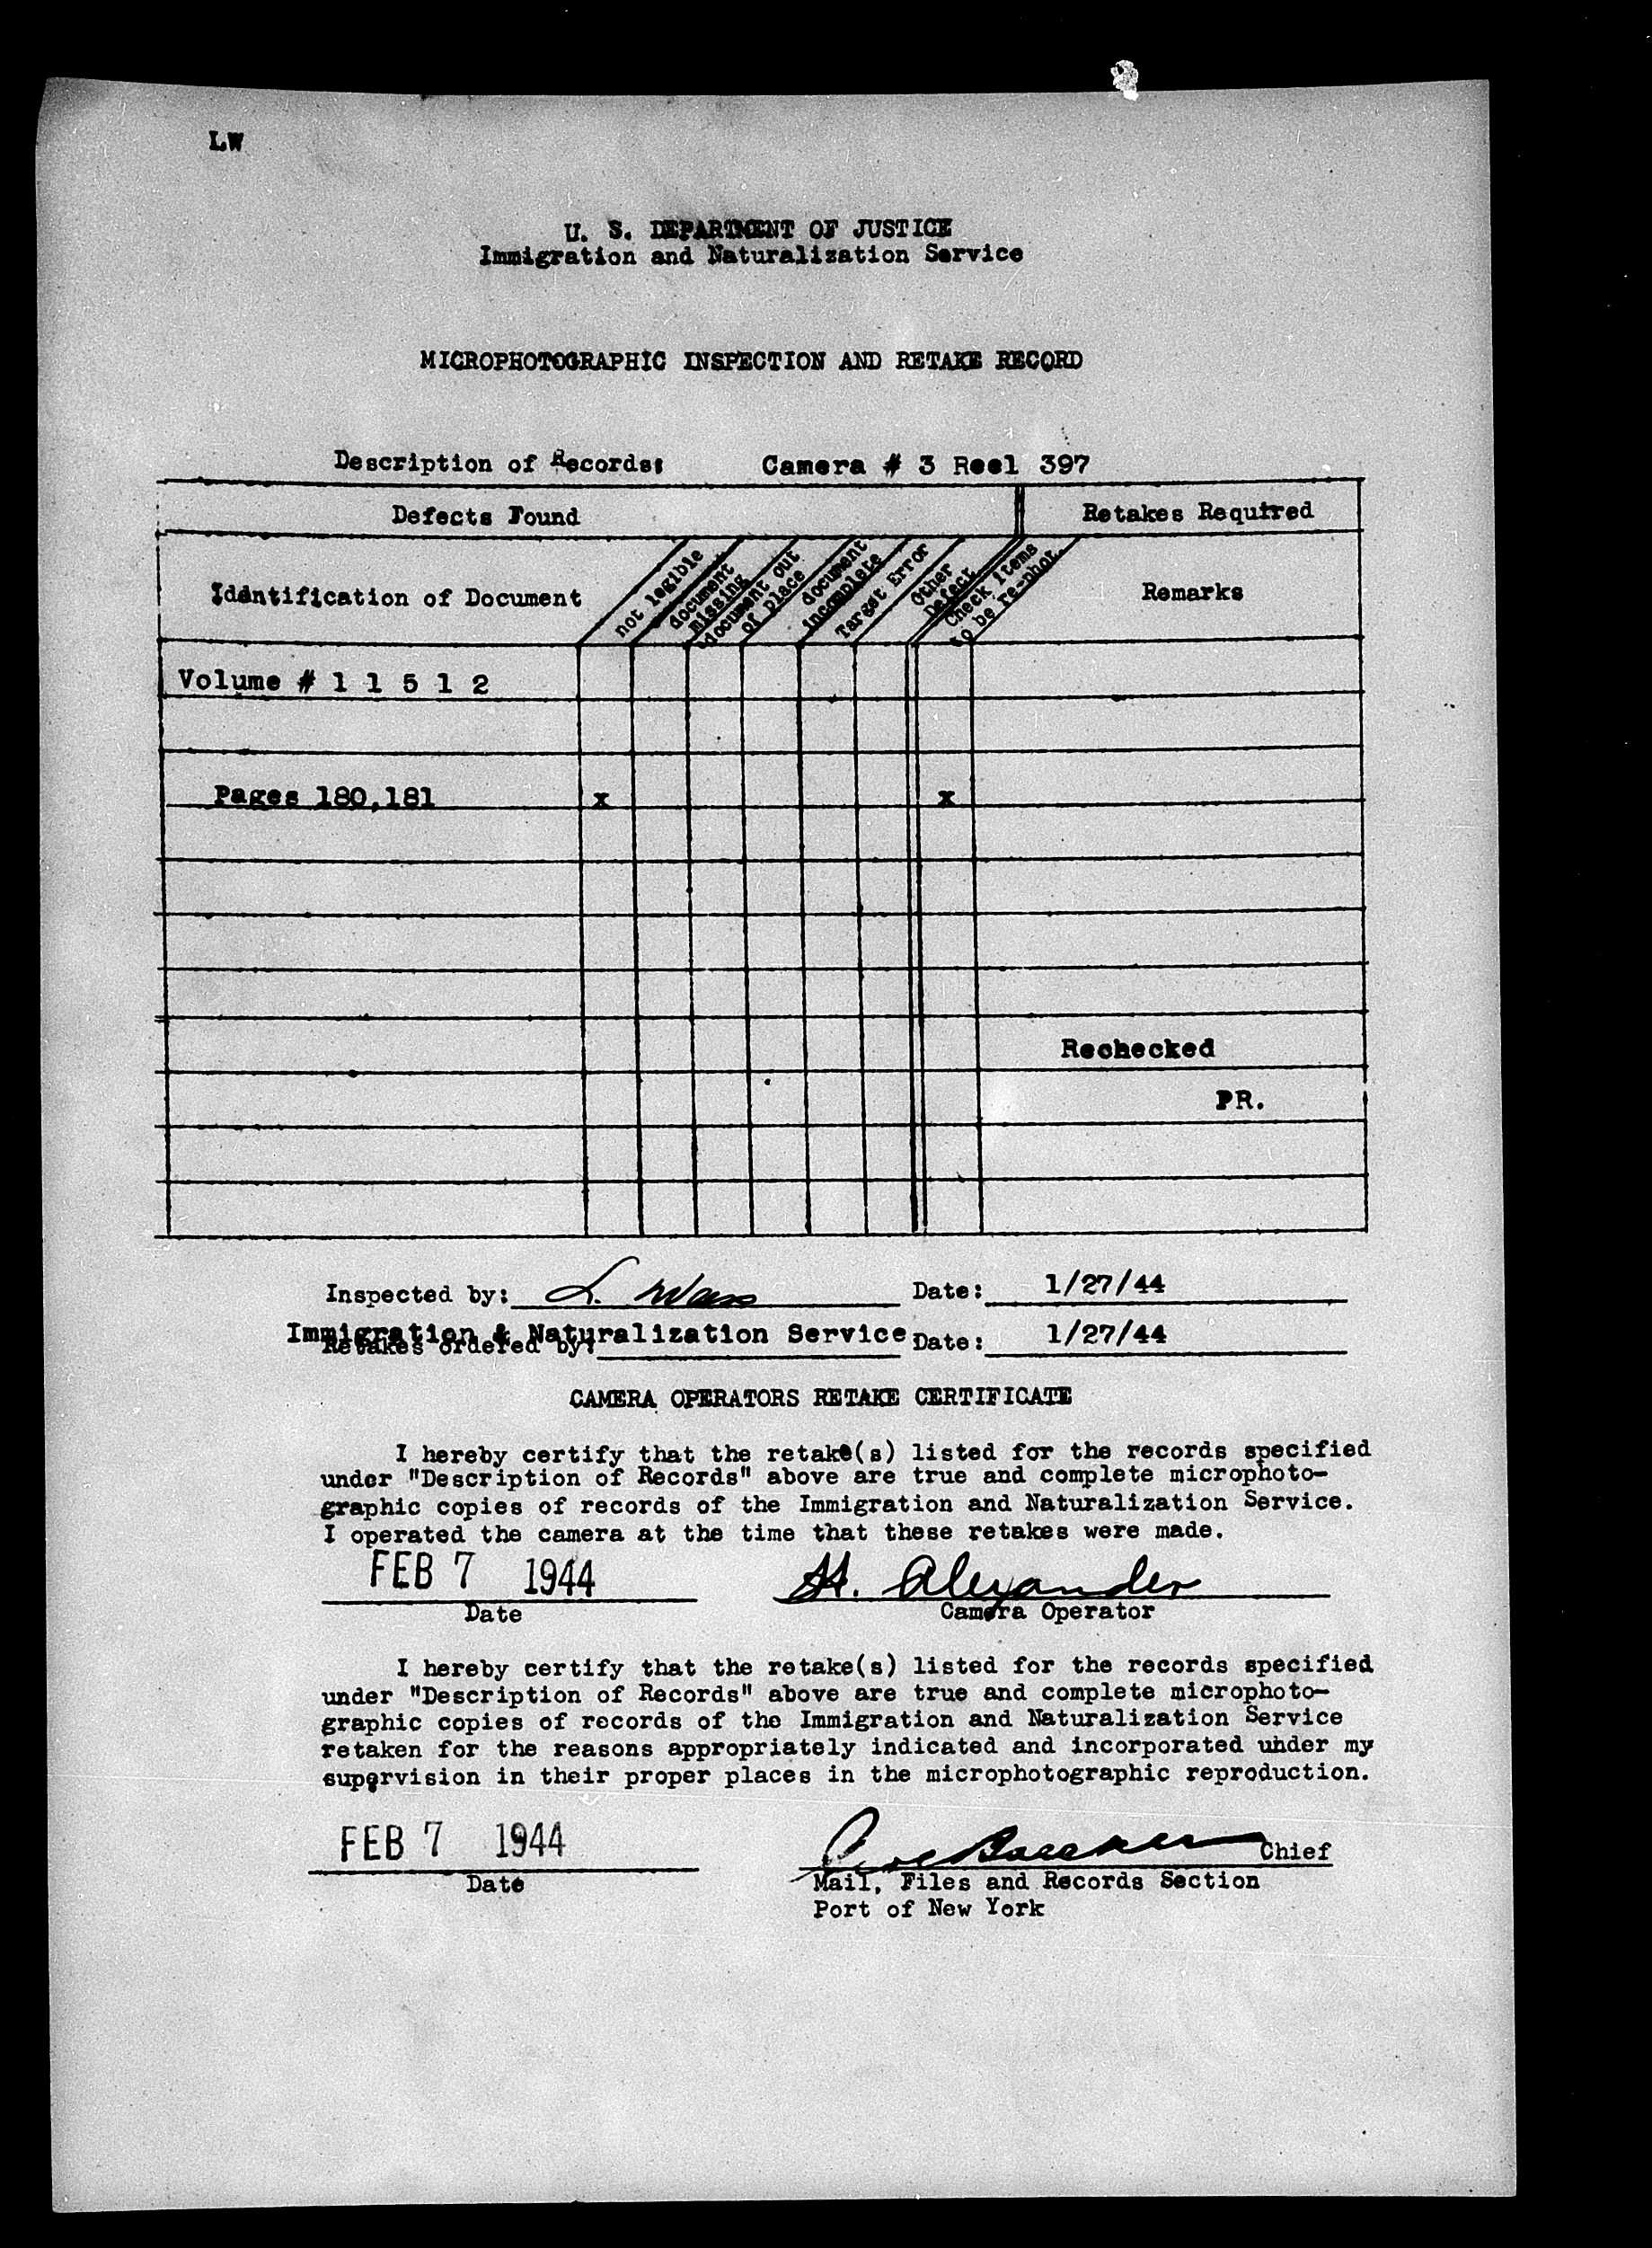 LW
U. S. DEPARTMENT OF JUSTICE
Immigration and Naturalization Service
MICROPHOTOGRAPHIC INSPECTION AND RETAKE RECORD
Description of Records: Camera # 3 Reel 397
Defects Found Retakes Required
Identification of Document
not legible
document missing
document out of place
document incomplete
Target Error
Other Defect
Check Items to be re-phot.
Remarks
Volume # 1 1 5 1 2
Pages 180,181 x x
Rechecked
PR.
Inspected by: L. Date: 1/27/44
Immigration & Naturalization Service
Retakes ordered by: Date: 1/27/44
CAMERA OPERATORS RETAKE CERTIFICATE
I hereby certify that the retake(s) listed for the records specified
under "Description of Records" above are true and complete microphoto-
graphic copies of records of the Immigration and Naturalization Service.
I operated the camera at the time that these retakes were made.
FEB 7 1944 H. Alexander
Date Camera Operator
I hereby certify that the retake(s) listed for the records specified
under "Description of Records" above are true and complete microphoto-
graphic copies of records of the Immigration and Naturalization Service
retaken for the reasons appropriately indicated and incorporated under my
supervision in their proper places in the microphotographic reproduction.
FEB 7 1944 Chief
Date Mail, Files and Records Section
Port of New York